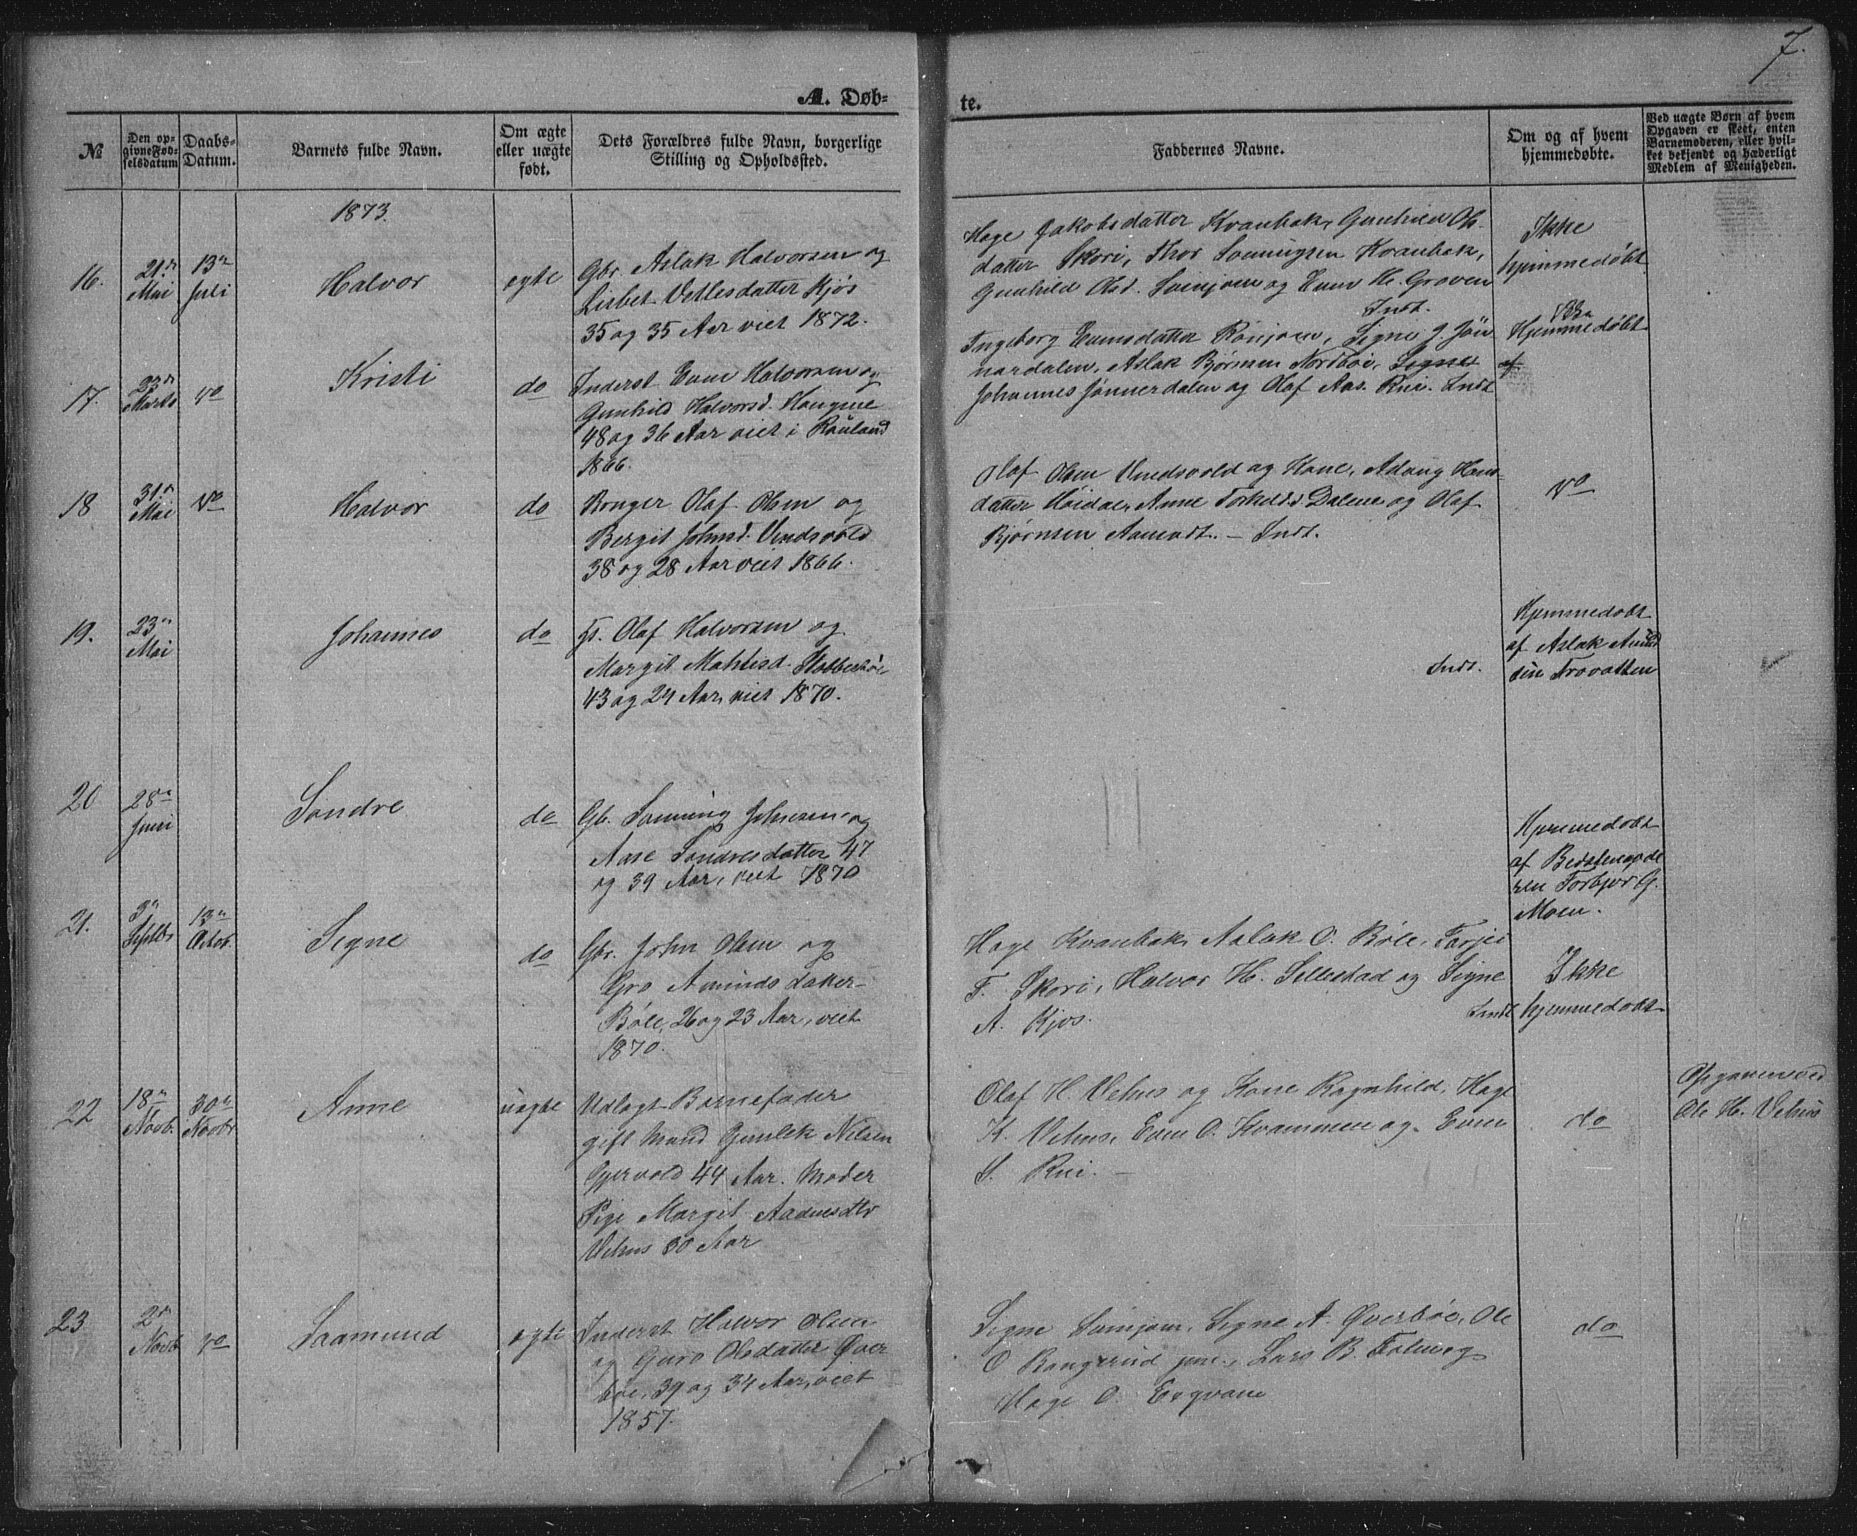 7.
A. Døb-
te.
№
Den op-
givne Fød-
selsdatum
Daabs-
Datum.
Barnets fulde Navn.
Om ægte
eller uægte
født.
Dets Forældres fulde Navn, borgerlige
Stilling og Opholdssted.
Faddernes Navne.
Om og af hvem
hjemmedøbte.
Ved uægte Børn af hvem
Opgaven er skeet, enten
Barnemoderen, eller hvil-
ket bekjendt og hæderligt
Medlem af Menigheden.
1873.
16.
21n
Mai
13n
Juli
Halvor
egte
Gbr. Aslak Halvorsen og
Lisbet Vetlesdatter Kjos
35 og 35 Aar viet 1872.
Hage Jakobsdatter Kvanbek, Gunhild Ols-
datter Skori, Thor Sonnugsen Kvanbek,
Gunhild Olsd. Svinjom og Even H. Groven
Indt.
Ikke
hjemmedøbt
17.
Marts
do
Kristi
do
Inderst Even Halvorsen og
Gunhild Halvorsd. Haugene
48 og 36 Aar viet i Rauland
1866.
Ingeborg Evensdatter Ronjom, Signe J. Jön-
nardalen, Aslak Bjørnsen Nordbøi, Signe
Johannes Jönnerdalen og Olaf Aas. Rui. Indt
Hjemmedøbt
af
18
31n
Mai
do
Halvor
do
Bruger Olaf Olsen og
Bergit Johnsd. Vindsvold
38 og 28 Aar viet 1866.
Olaf Olsen Vindsvold og Kone, Adang Hans-
datter Høidal, Anne Torkelsd Dalene og Olaf
Bjørnsen Aamodt. – Indt.
do
19.
23n
Mai
Johannes
do
Fs. Olaf Halvorsen og
Margit Mathisd.
43 og 24 Aar, viet 1870.
Indt.
Hjemmedøbt
af Aslak Amund
sen Trovatten
20
28n
Juni
Sondre
do
Gb. Sonnung Johnsen og
Aase Sondresdatter 47
og 39 Aar, viet 1870
Hjemmedøbt
af Bedstemode
ren Torbjør G.
Moen.
21.
3n
Septbr
13n
Octob.
Signe
do
Gbr. John Olsen og
Gro Amundsdatter
Bøle, 26 og 23 Aar, viet
1870.
Hage Kvanbek, Aslak O. Bøle, Tarjei
T. Skori, Halvor H. Sillestad og Signe
A. Kjos.
Indt
Ikke
hjemmedøbt
22
18n
Novb.
30n
Novbr
Anne
uægte
Udlagt Barnefader
gift Mand Gunlek Nilsen
Gjervold 44 Aar. Moder
Pige Margit Aadnesdtr
Vehus 30 Aar
Olaf H. Vehus og Kone Ragnhild, Hage
H. Vehus, Even O. Kvammen og Even
S. Rui. –
do
Opgaven ved
Ole H. Vehus
23
2n
Novb.
do
Saamund
egte
Inderst Halvor Olsen
og Guro Olsdatter Øver
bøe, 39 og 34 Aar, viet
1857.
Signe Svinjom, Signe A. Øverbøe, Ole
O Rangerud jun., Lars B. Fosen og
Hage O.
do